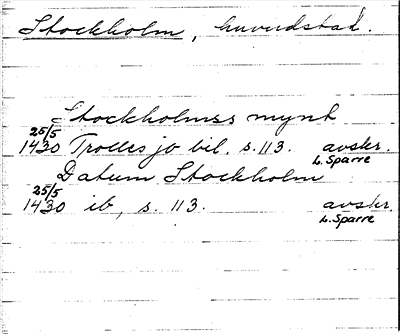 Stockholm, huvudstad.
Stockholmss mynt
25/5
1430 Trolles jb bil. s. 113. avskr.
L. Sparre
Datum Stockholm
25/5
1430 ib, s. 113. avskr.
L. Sparre